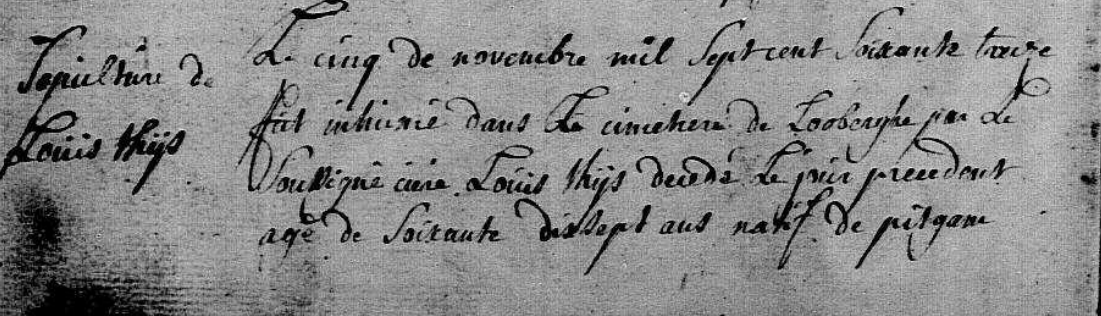 Sepulture de
Louis thijs
Le cinq de novembre mil Sept cent Soixante treize
fut inhumé dans Le cimetiere de Looberghe par Le
Soussigné curé Louis thijs decedé Le jour precedent
agé de Soixante dixsept ans natif de pitgam